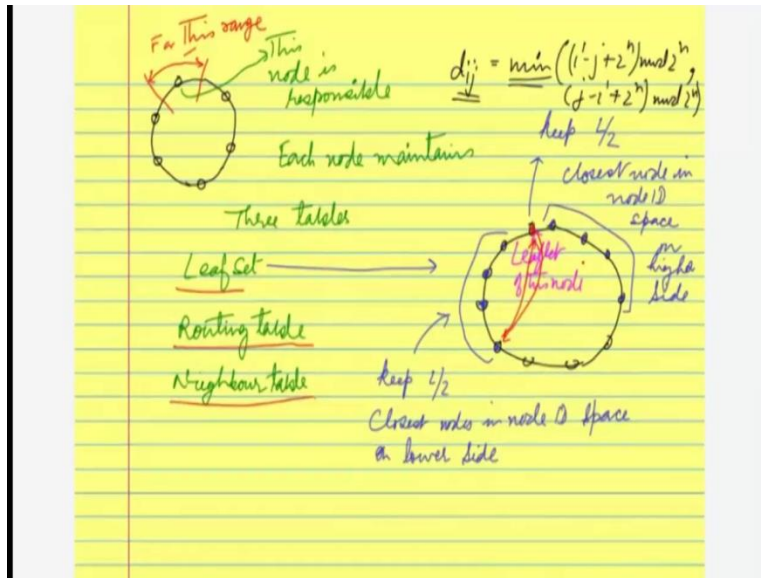 For This range
This
node is
responsible
dij = min((i-j+2^n) mod 2^n,
(j-i+2^n) mod 2^n)
Each node maintains
Three tables
Leaf Set
Routing table
Neighbour table
keep L/2
closest node in
node ID
space
on
higher
side
Leafset
of this node
keep L/2
Closest nodes in node ID space
on lower side